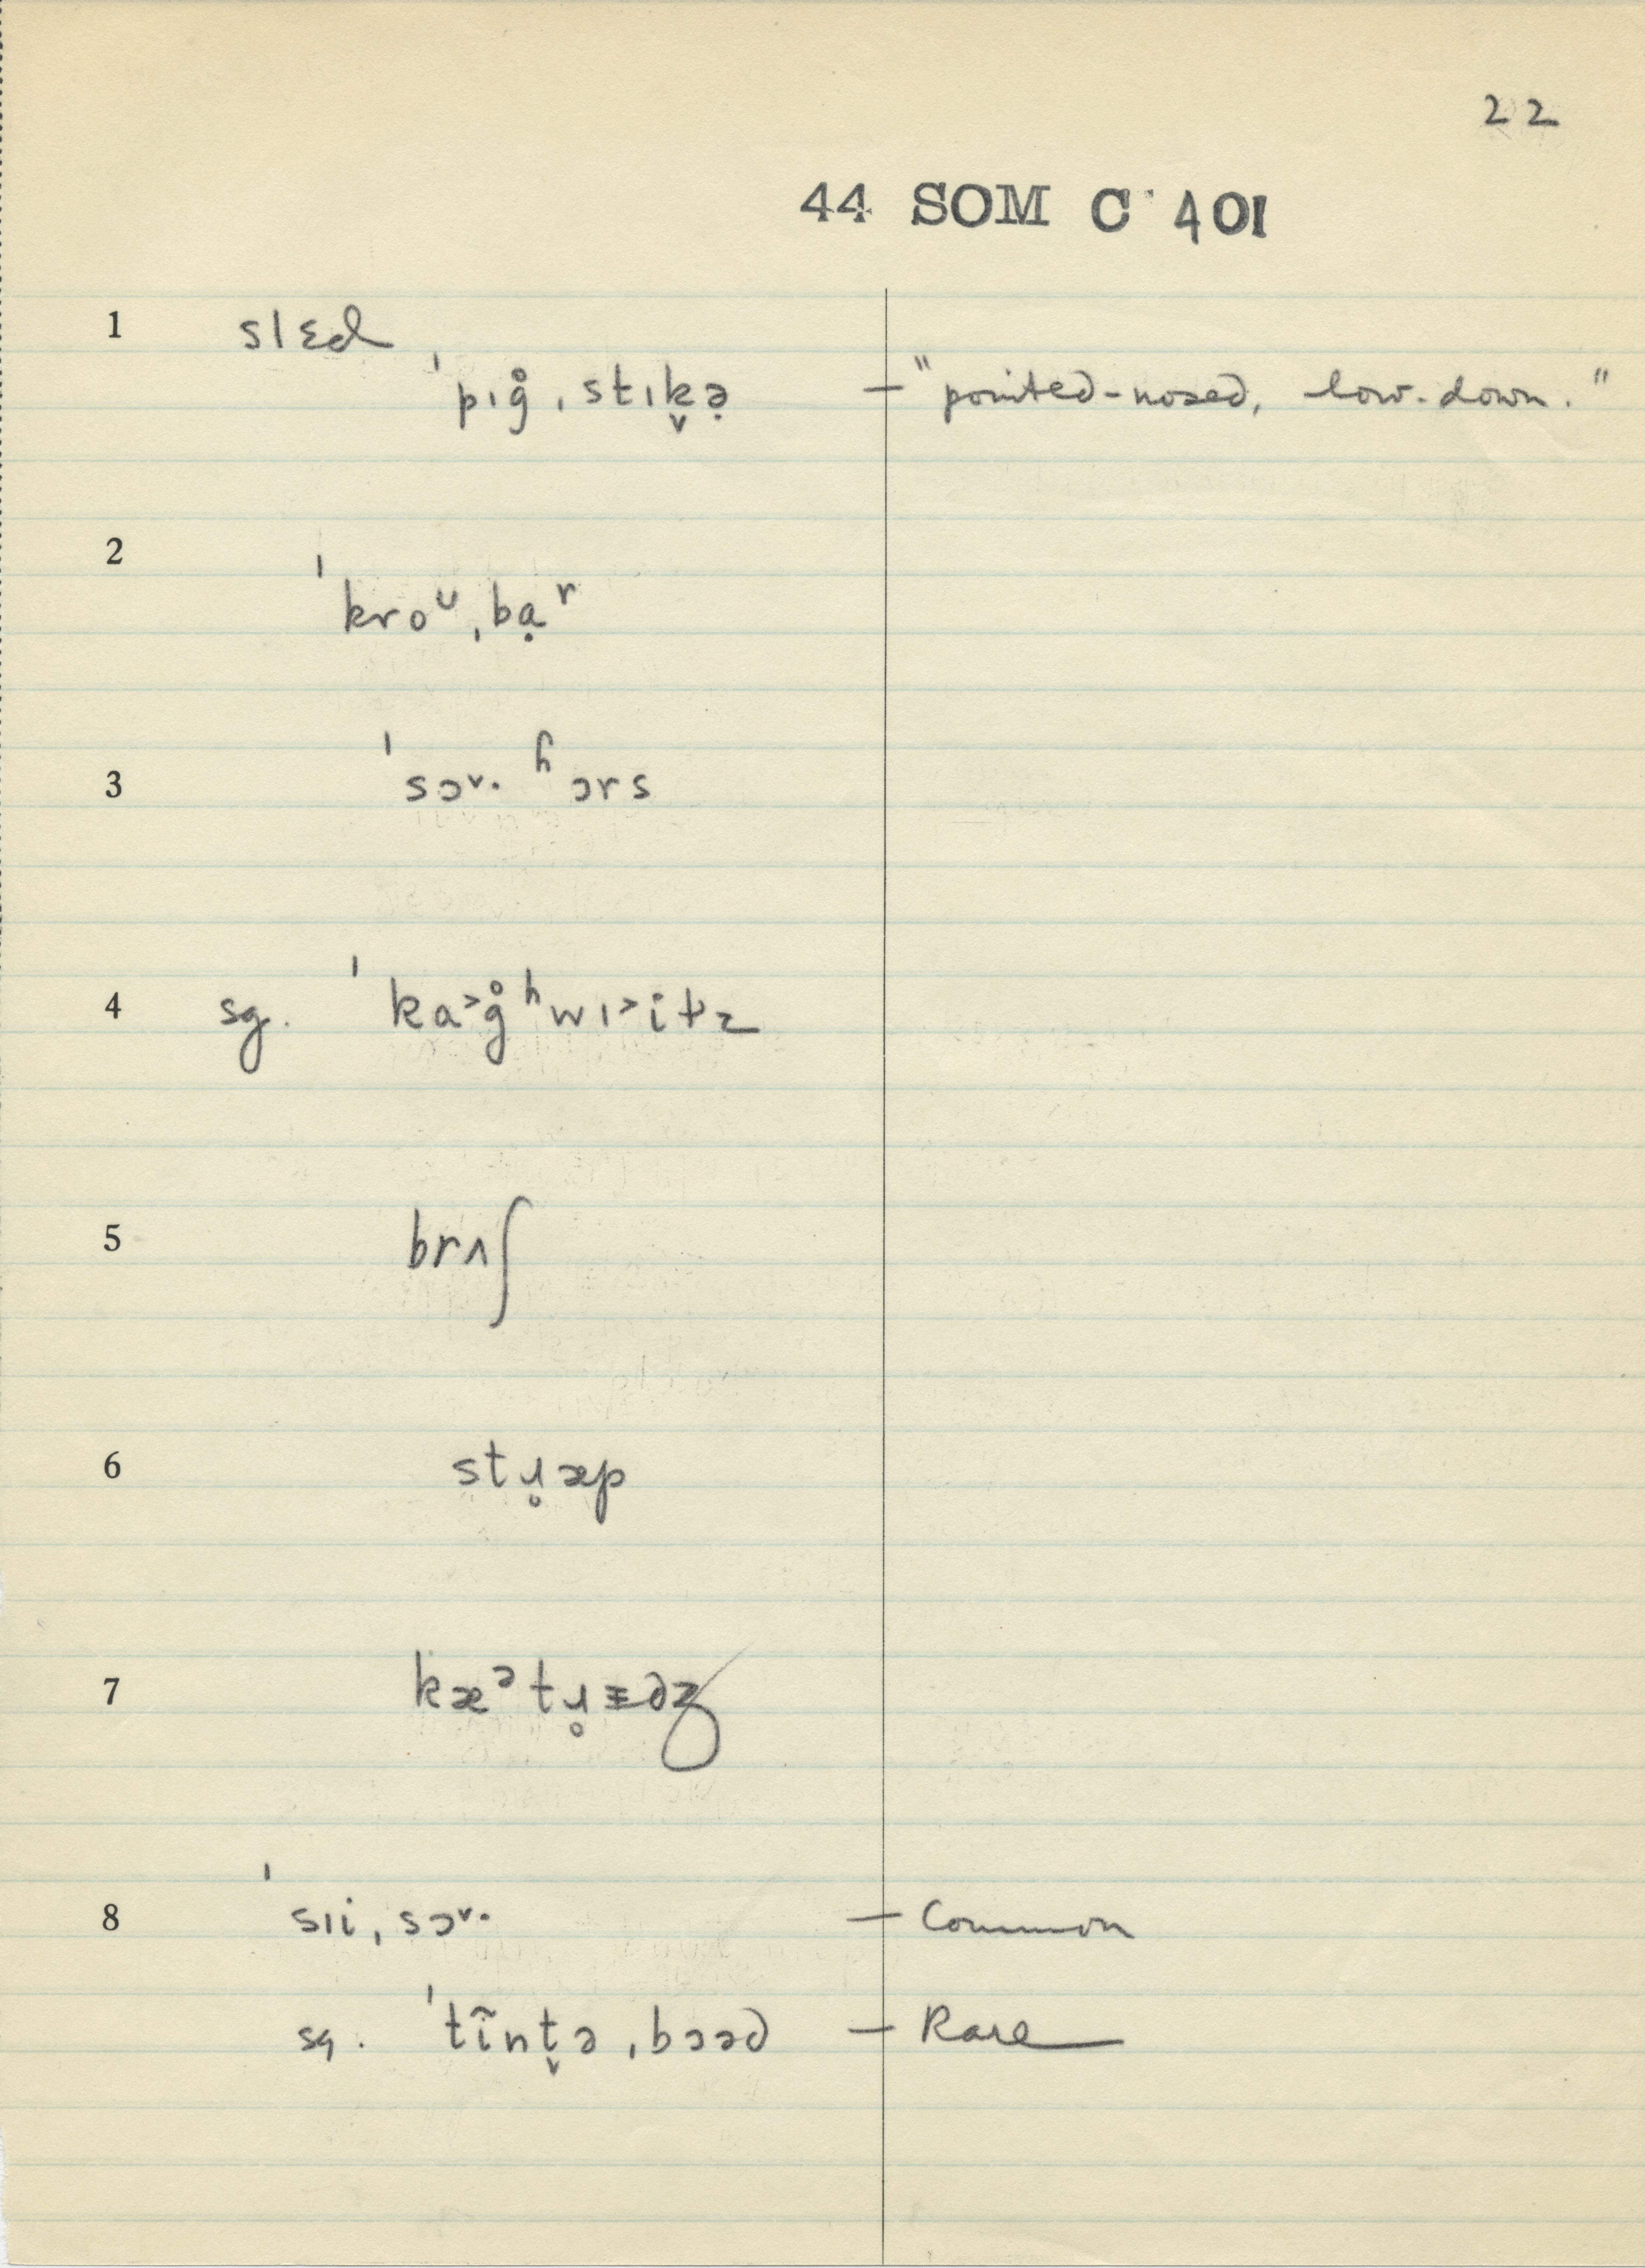 22
44 SOM C 401
1 slɛd
ˈpɪg̊ˌstɪk̬ə̣ — "pointed-nosed, low-down."
2 ˈkroᶸˌbạʳ
3 ˈsɔ˅· ʱɔrs
4 sg. ˈka˃g̊ʰwɪ˃it̬z
5 brʌʃ
6 stɹ̥æp
7 kæᵊtɹ̥ɪdʒ
8 ˈsɪiˌsɔ˅· — Common
sg. ˈtĩnt̬əˌbɔəd — Rare